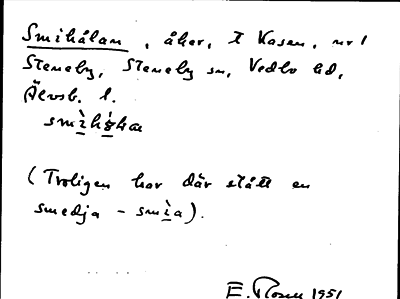 Smihålan, åker, t Kasen, nr 1
Steneby, Steneby sn, Vedbo hd,
Älvsb. l.
(Troligen har där stått en
smedja - smìa).
E. Rosen 1951